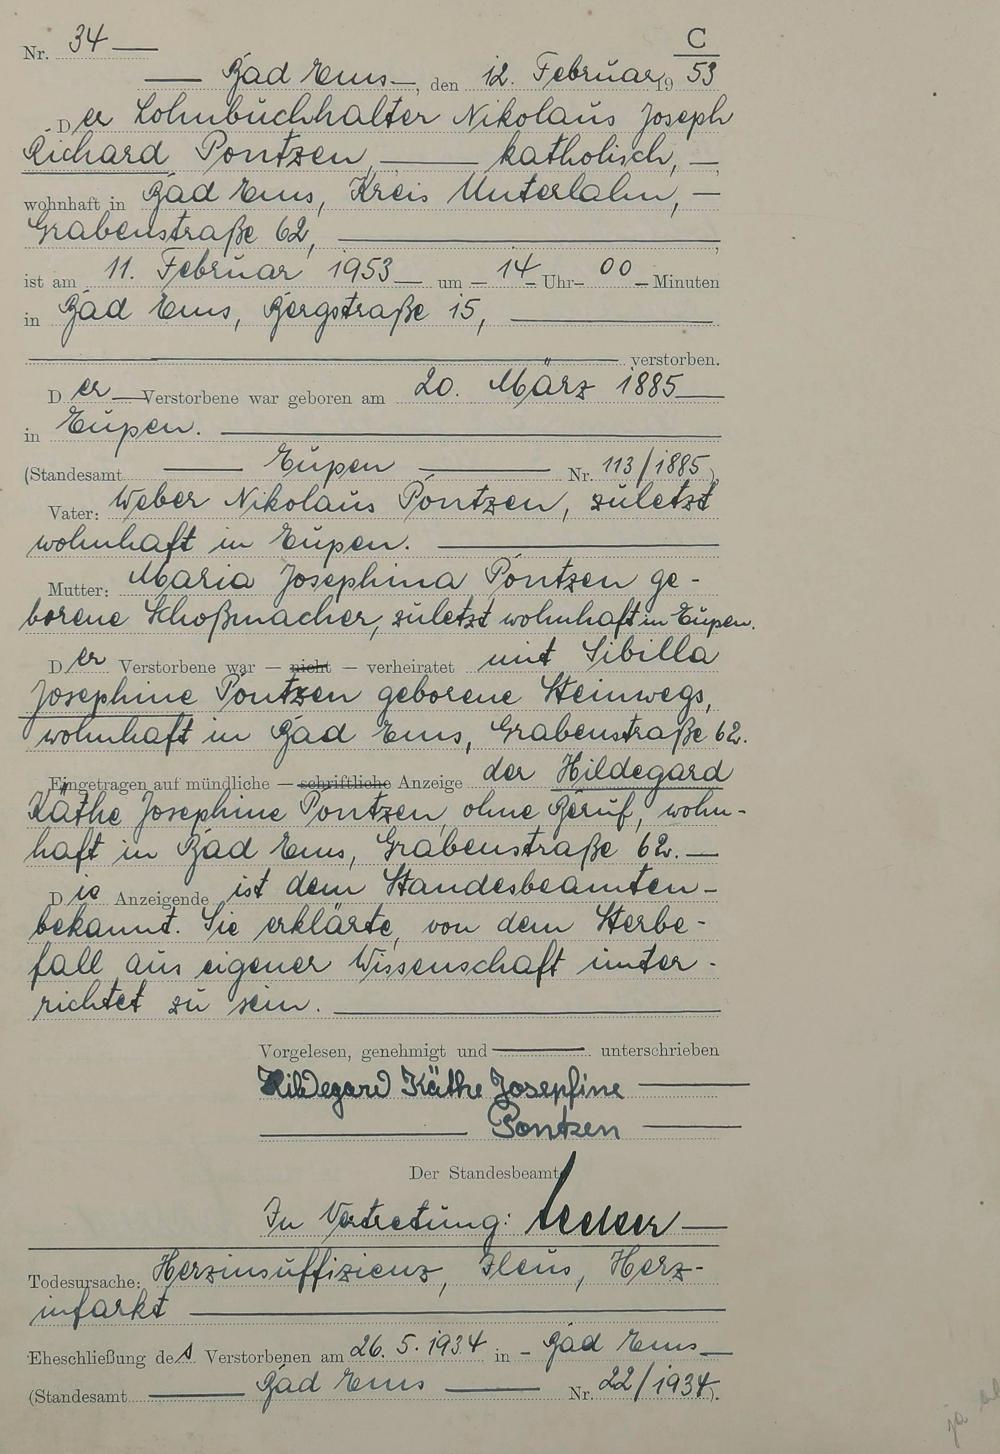 C
Nr. 34
Bad Ems, den 12. Februar 1953
Der Lohnbuchhalter Nikolaus Joseph
Richard Pontzen, katholisch,
wohnhaft in Bad Ems, Kreis Unterlahn,
Grabenstraße 62,
ist am 11. Februar 1953 um 14 Uhr 00 Minuten
in Bad Ems, Bergstraße 15,
verstorben.
Der Verstorbene war geboren am 20. März 1885
in Eupen.
(Standesamt Eupen Nr. 113/1885)
Vater: Weber Nikolaus Pontzen, zuletzt
wohnhaft in Eupen.
Mutter: Maria Josephina Pontzen ge-
borene Schoßmacher, zuletzt wohnhaft in Eupen.
Der Verstorbene war — nicht — verheiratet mit Sibilla
Josephine Pontzen geborene Steinwegs,
wohnhaft in Bad Ems, Grabenstraße 62.
Eingetragen auf mündliche — schriftliche Anzeige der Hildegard
Käthe Josephine Pontzen, ohne Beruf, wohn-
haft in Bad Ems, Grabenstraße 62.
Die Anzeigende ist dem Standesbeamten
bekannt. Sie erklärte, von dem Sterbe-
fall aus eigener Wissenschaft unter-
richtet zu sein.
Vorgelesen, genehmigt und unterschrieben
Hildegard Käthe Josepfine
Pontzen
Der Standesbeamte
In Vertretung:
Todesursache: Herzinsuffizienz, Ileus, Herz-
infarkt
Eheschließung des Verstorbenen am 26. 5. 1934 in Bad Ems
(Standesamt Bad Ems Nr. 22/1934).
ja